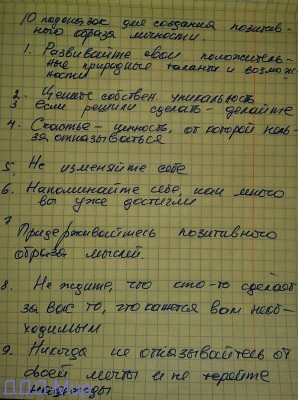 10 подсказок для создания позитив-
ного образа личности.
1. Развивайте свои положитель-
ные природные таланты и возмож
ности
2. Цените собствен. уникальность
3 Если решили сделать - делайте
4. Счастье - ценность, от которой нель-
зя отказываться
5. Не изменяйте себе
6. Напоминайте себе, как много
вы уже достигли
7
Придерживайтесь позитивного
образа мыслей.
8. Не ждите, что кто-то сделает
за вас то, что кажется вам необ-
ходимым
9. Никогда не отказывайтесь от
своей мечты и не теряйте
надежды